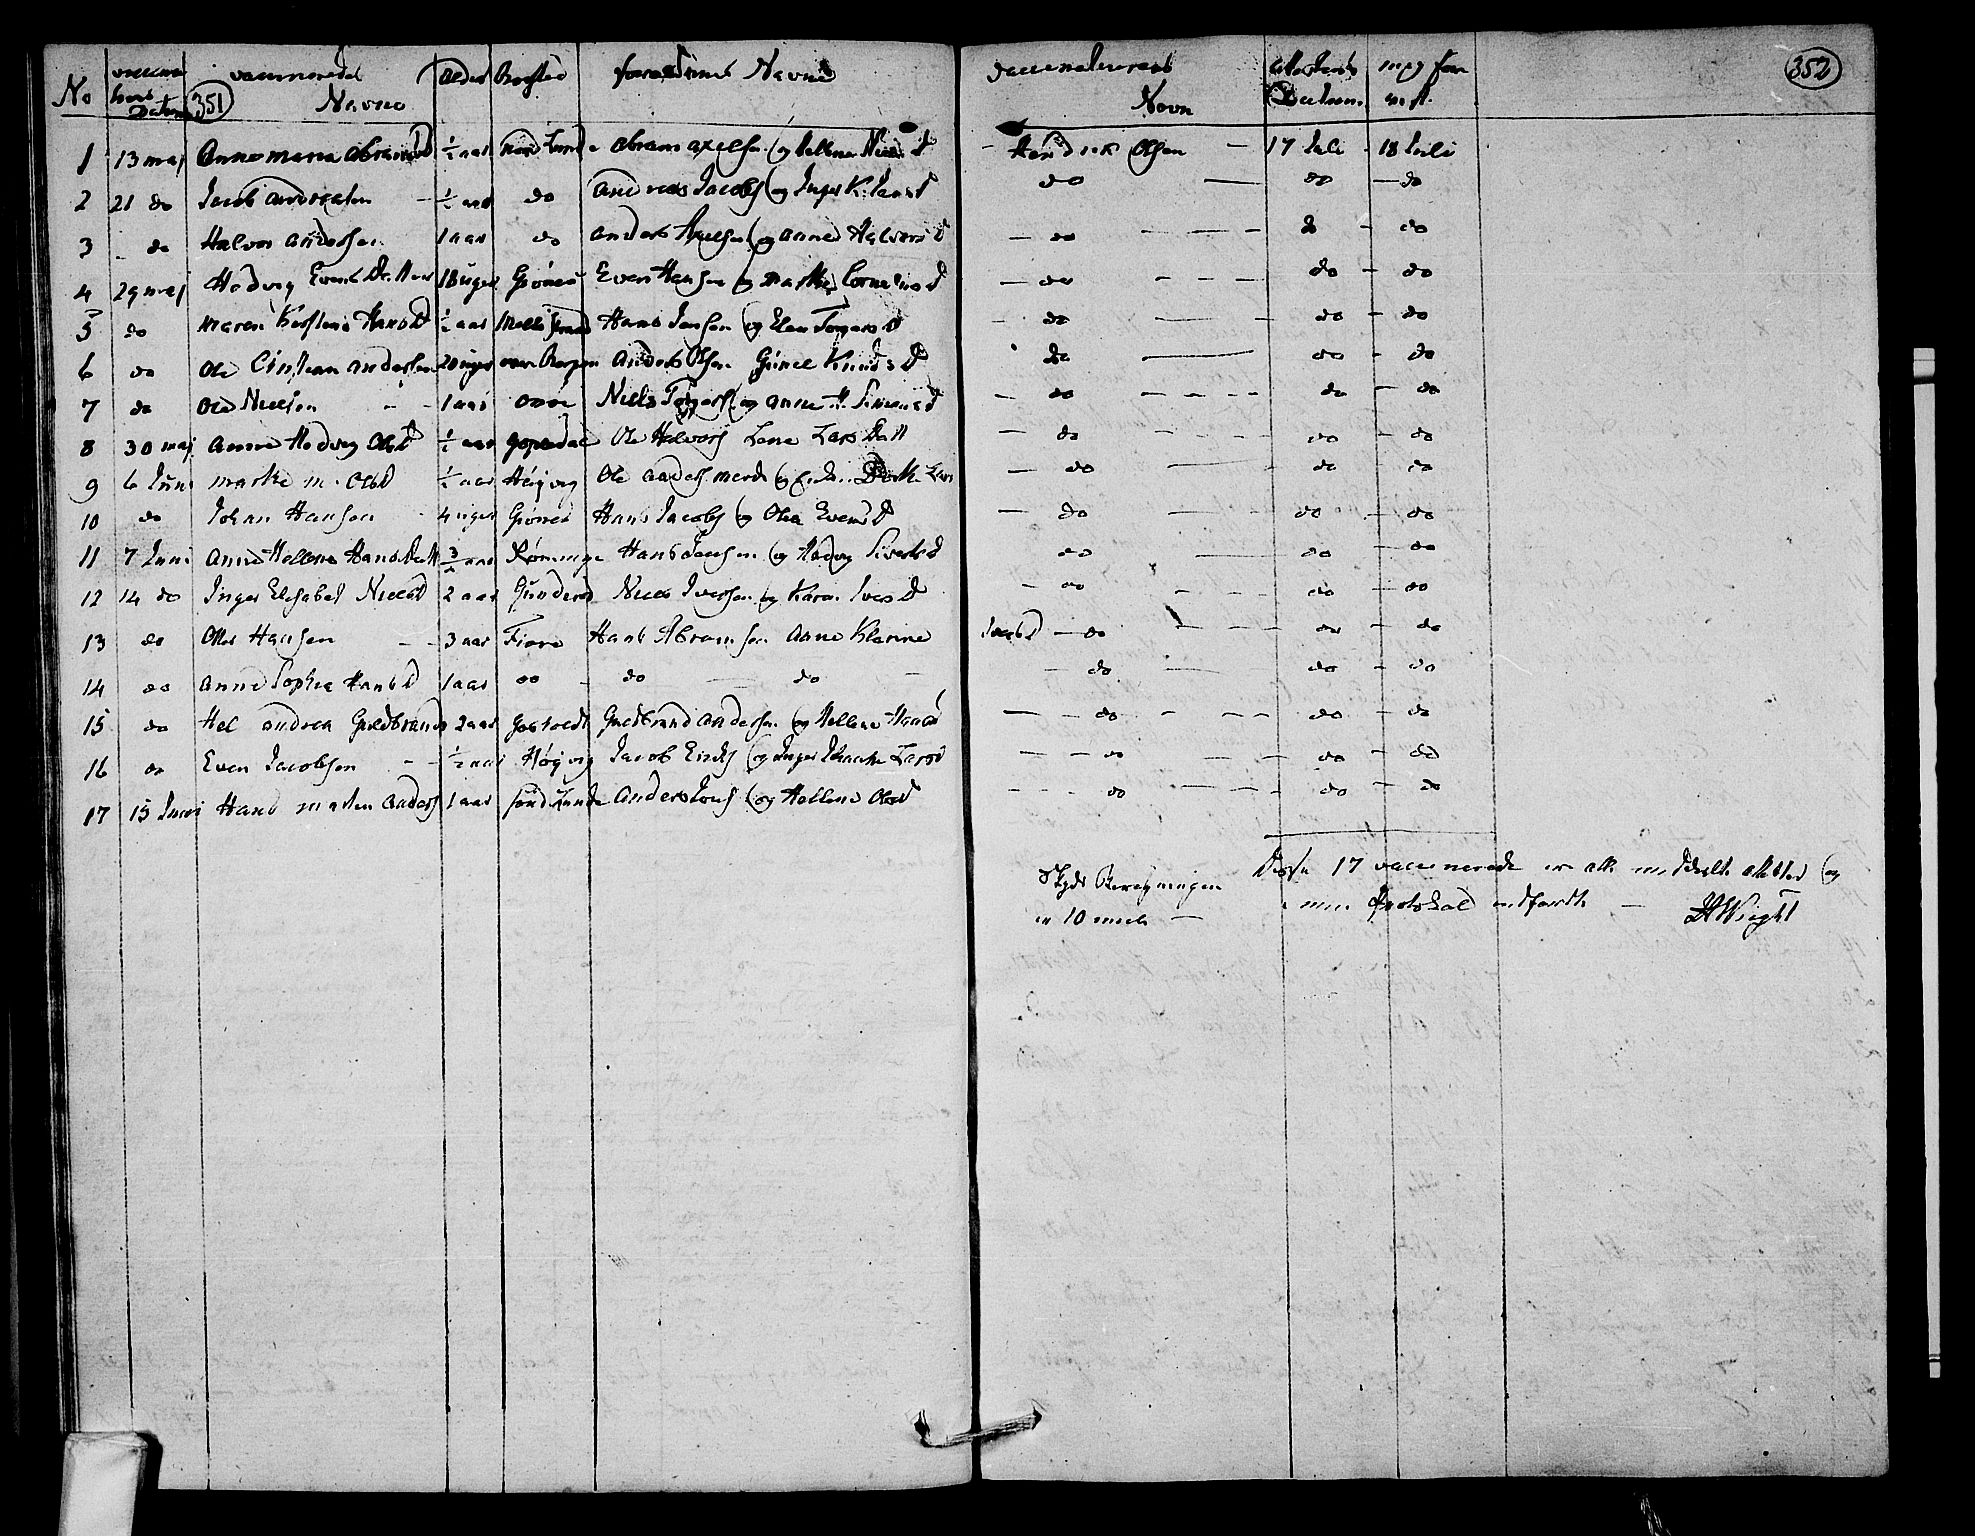 No vaccina tions Datum vaccineredes Navne Alder Bosted foreldrenes Navne
351
1 13 maj Anne maria Abrams D ½ aar nord Lunde Abram axelsen og Hellene Niels D
2 21 do Jacob andreasen ½ aar do andreas Jacobs og Inger K. Lars D
3 do Halvor andersen 1 aar do anders Nielsen og anne Halvors D
4 29 maj Hedvig Evens Datter 18 uger Grønes Even Hansen og marthe Cornelius D
5 do maren Kirstine Hans D ½ aar Hans Jensen og Elen Torgers D
6 do Ole Cristian andersen 20 uger anders Olsen Gunel Knuds D
7 do Ole Nielsen 1 aar Niels Torgers og anne M. Simons D
8 30 maj anne Hedvig Ols D ½ aar Ole Halvors Lene Lars Datt
9 6 Juni marthe m. Ols D ½ aar Høigvig Ole anders Lars
10 do Johan Hansen 4 uger Grønes Hans Jacobs og Olea Evens D
11 7 Juni anne Hellene Hans Datt ¾ aar Rønninge Hans Jensen og Hedvig Siverts D
12 14 do Inger Elisabet Niels D 2 aar Gunderød Niels Iversen og Karen Ivers D
13 do Hansen 3 aar Fiere Hans Abramsen Anne Klarine
14 do anne Sophia Hans D 1 aar do do do
15 do Hel andrea Guldbrands 2 aar Guldbrand andersen og Hellene Hans D
16 do Even Jacobsen ½ aar Høgvig Jacob Erichs og Inger Lars D
17 15 Juni Hans marten anders 1 aar sønd Lunde Anders og Hellene Ols D
352
vaccinateurens Navn attestens Datum
Hendrik Olsen 17 Juli 18 Juli
do do do
do do do
do do do
do do do
do do do
do do do
do do do
do do do
do do do
do do do
do do do
Jacobs D do do do
do do do
do do do
do do do
do do do
Disse 17 vaccinerede er alle meddelte attester og
i min Protokol indførdte
Skyds Beregningen
er 10 miile